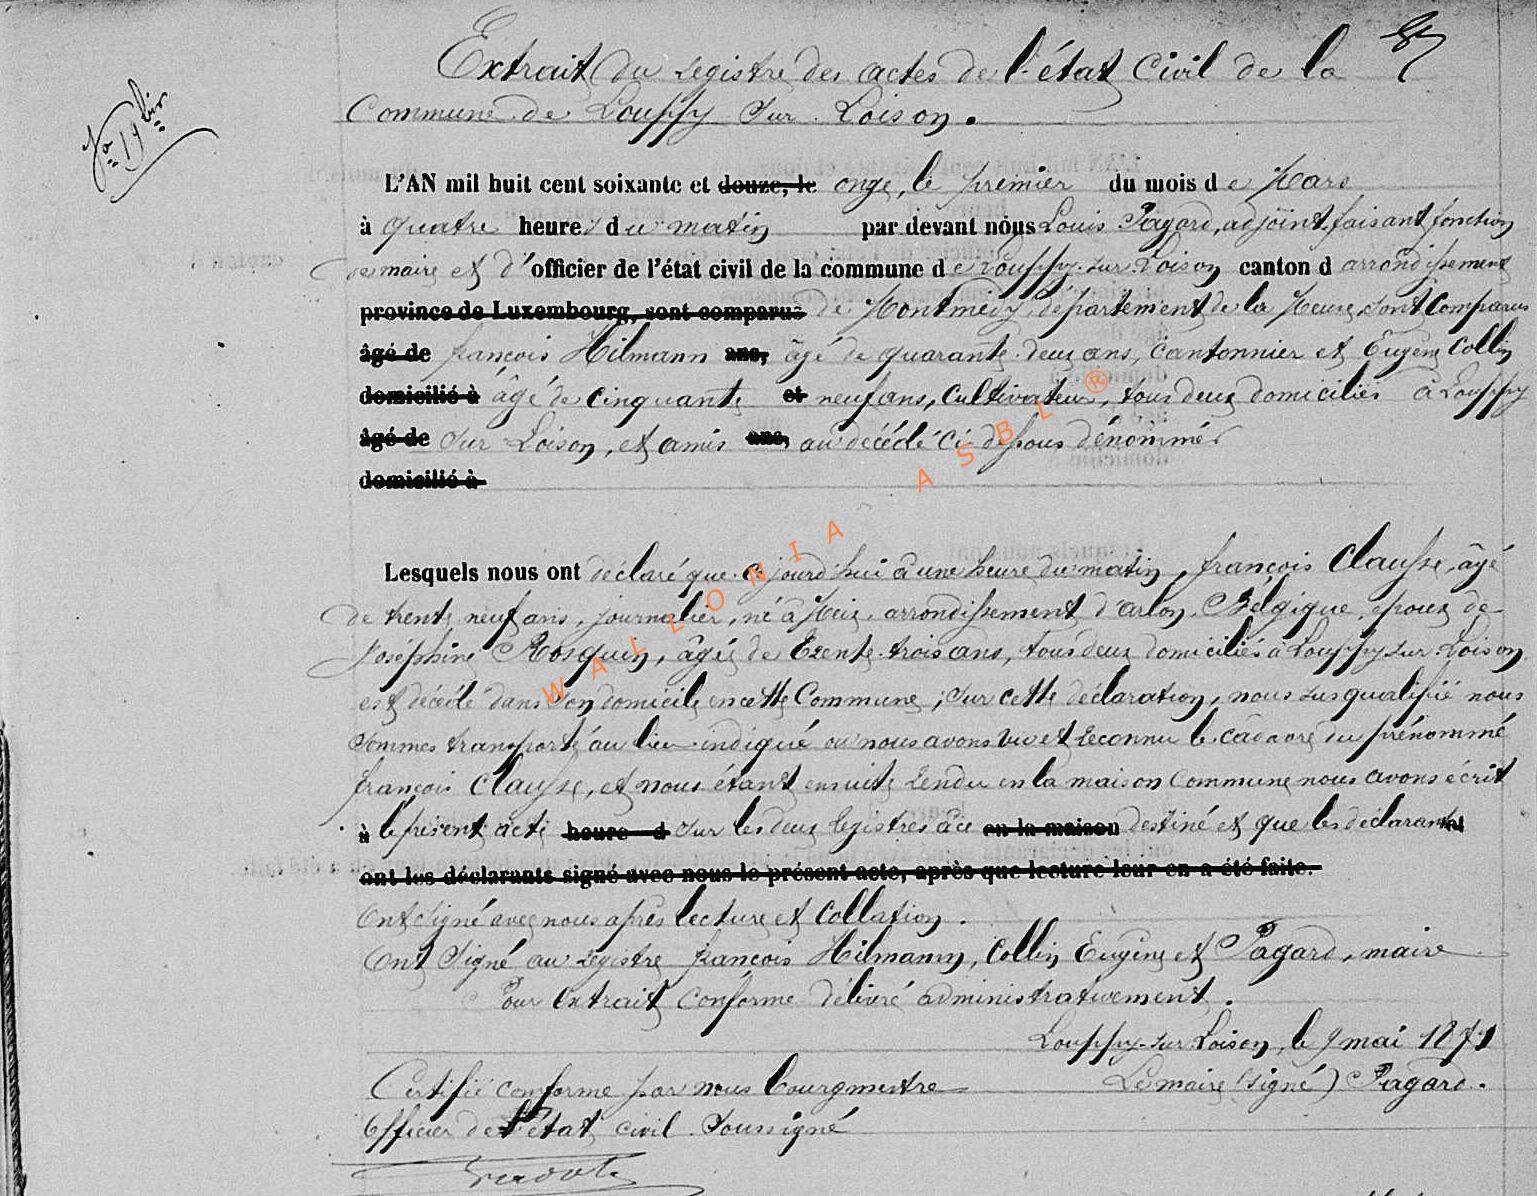 Extrait du registre des actes de l'état Civil de la
Commune de Louppy sur Loison.
Nº 19 bis
L'AN mil huit cent soixante et douze, le onze, le premier du mois de Mars
à quatre heures du matin par devant nous Louis Pagard, adjoint, faisant fonction
de maire et d'officier de l'état civil de la commune de Louppy-sur-Loison canton d arrondissement
province de Luxembourg, sont comparus de Montmédy, département de la Meuse, sont Comparus
âgé de françois Hilmann ans, âgé de quarante-deux ans, cantonnier et Eugène Collin
domicilié à âgé de cinquante et neuf ans, Cultivateur, tous deux domiciliés à Louppy
âgé de sur Loison, et amis ans, au décédé ci-dessous dénommés
domicilié à
Lesquels nous ont déclaré que aujourd'hui à une heure du matin, françois Clausse, âgé
de trente neuf ans, journalier, né à Meix, arrondissement d'arlon, Belgique, epoux de
Joséphine Rosquin, âgée de trente-trois ans, tous deux domiciliés à Louppy-sur-Loison
est décédé dans son domicile en cette Commune; sur cette déclaration, nous susqualifié nous
sommes transporté au lieu indiqué où nous avons vu et reconnu le cadavre du prénommé
françois Clausse, et nous étant ensuite rendu en la maison commune nous avons écrit
à le présent acte heure d sur les deux registres à ce en la maison destiné et que les déclarants
ont les déclarants signé avec nous le présent acte, après que lecture leur en a été faite.
Ont signé avec nous après lecture et Collation.
Ont Signé au registre françois Hilmann, Collin Eugène et Pagard, maire
Pour Extrait Conforme délivré administrativement.
Louppy-sur-Loison, le 9 mai 1871
Certifié conforme par nous bourgmestre Le maire (signé) Pagard.
Officier de l'état civil soussigné
WALLONIA ASBL ®